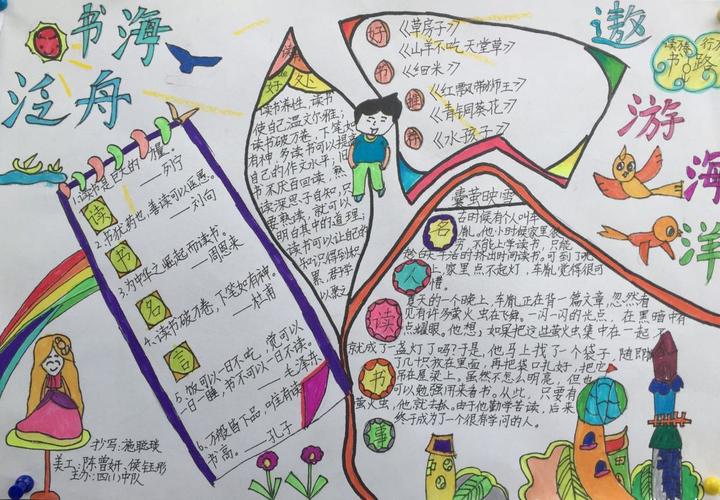 书海
泛舟
遨
游
海
洋
读书
好处
读书养性，读书
使自己温文尔雅；
读书破万卷，下笔如
有神，多读书可以提高
自己的作文水平；旧
书不厌百回读，熟
读深思子自知，只
要熟读，就可以
明白其中的道理；
读书可以让自己的
知识得到积
累，君子学
以聚之
好书推荐
《草房子》
《山羊不吃天堂草》
《细米》
《红瓢带狮王》
《青铜葵花》
《水孩子》
读书名言
1.读书是巨大的力量。
——列宁
2.书犹药也，善读可以医愚。
——刘向
3.为中华之崛起而读书。
——周恩来
4.读书破万卷，下笔如有神。
——杜甫
5.饭可以一日不吃，觉可以
一日不睡，书不可以一日不读。
——毛泽东
6.万般皆下品，唯有读
书高。——孔子
名人读书事
囊萤映雪
古时候有个人叫车
胤。他小时候家里
穷，不能上学读书，只能
趁白天干活时挤出时间读书。可到了晚
上，家里点不起灯，车胤觉得很可
惜。
夏天的一个晚上，车胤正在背一篇文章，忽然看
见有许多萤火虫在飞舞。一闪一闪的光点，在黑暗中有
点耀眼。他想，如果把这些萤火虫集中在一起，不
就成了一盏灯了吗？于是，他马上找了个袋子，随即抓
了几只放在里面，再把袋口扎好，把它
吊在屋梁上，虽然不怎么明亮，但也
可以勉强用来看书。从此，只要有
萤火虫，他就去抓。由于他勤学苦读，后来
终于成为了一个很有学问的人。
抄写：施聪瑛
美工：陈曾妍、侯钰彤
主办：四(1)中队